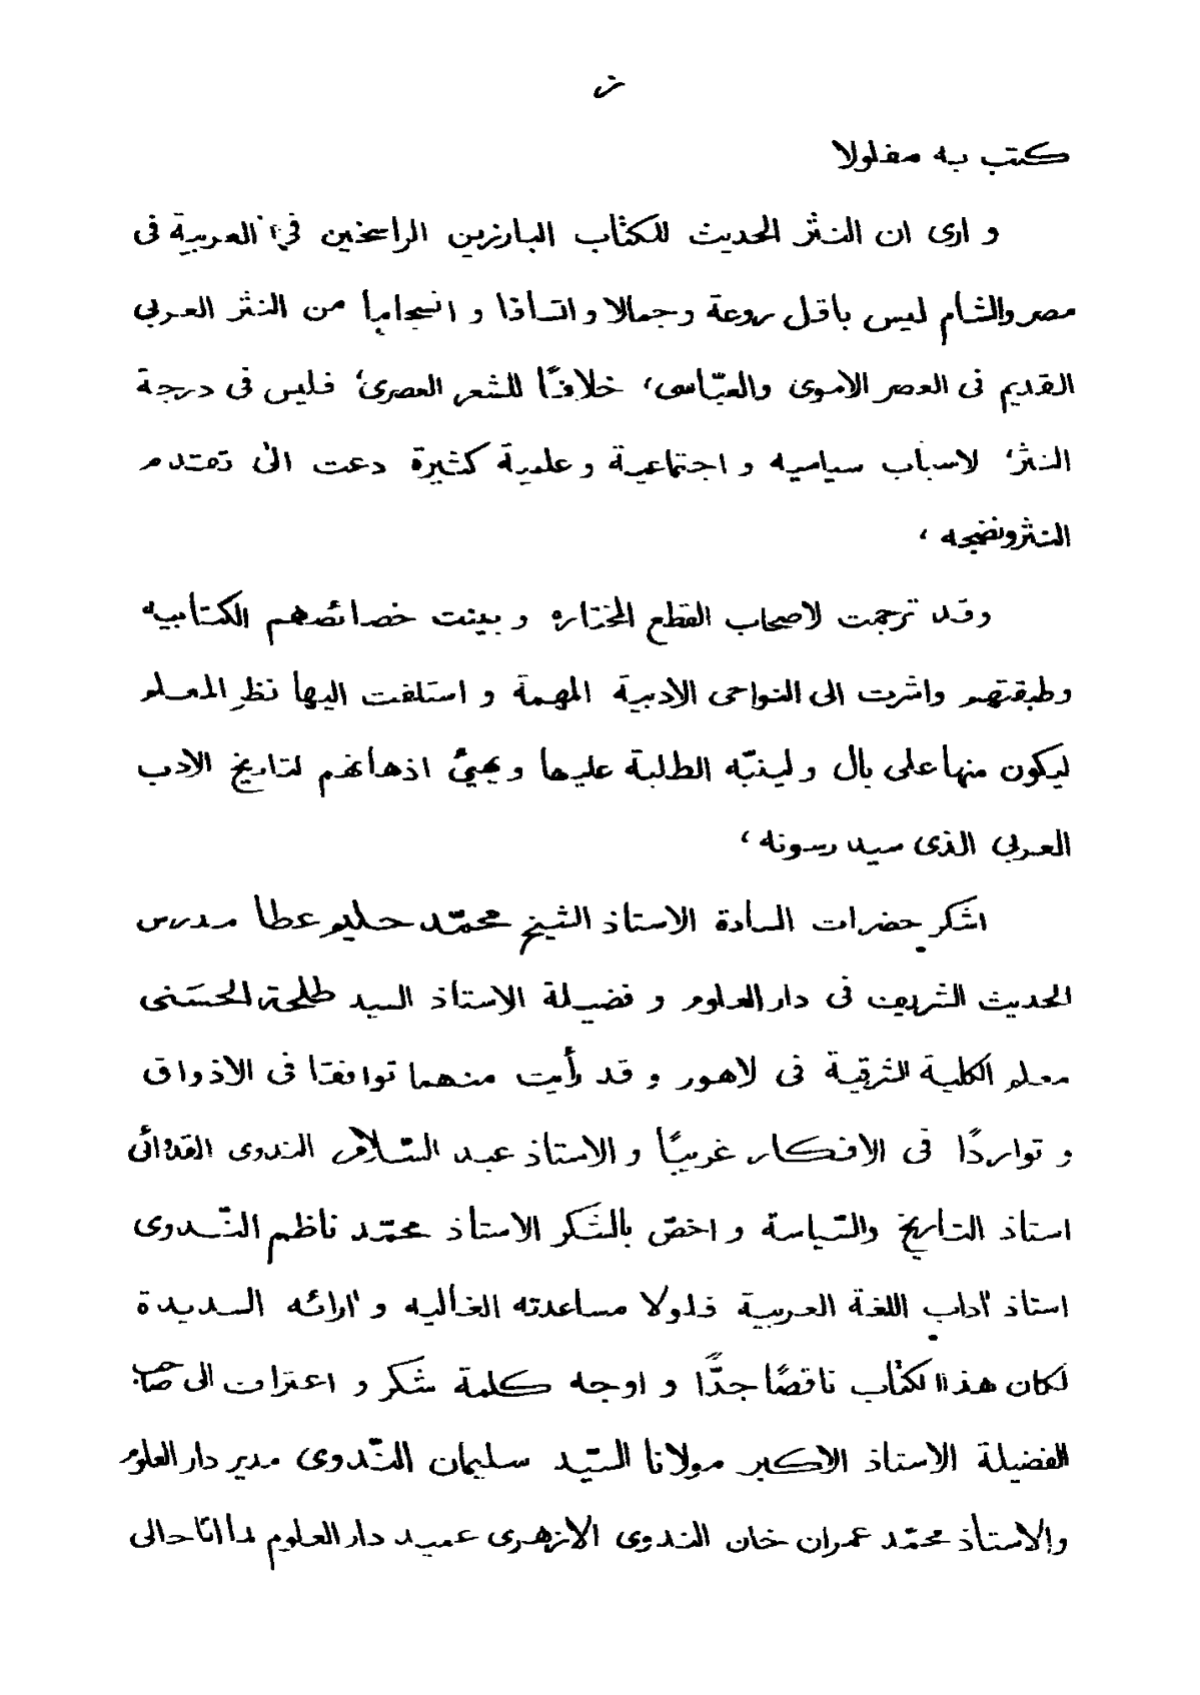 ز
كتب به مفلولا
و ارى ان النثر الحديث للكتّاب البارزين الراسخين في العربية فى
مصر والشام ليس باقل روعة وجمالا واتساقا و انسجاما من النثر العربي
القديم فى العصر الاموى والعبّاسى، خلافًا للشعر العصرى، فليس فى درجة
النثر، لاسباب سياسيه و اجتماعية وعلمية كثيرة دعت الى تقدم
النثر ونضجه ،
وقد ترجمت لاصحاب القطع المختاره و بينت خصائصهم الكتابيه
وطبقتهم واشرت الى النواحى الادبية المهمة و استلفت اليها نظر المعلم
ليكون منها على بال ولينبّه الطلبة عليها ويهيئ اذهانهم لتاريخ الادب
العربي الذى سيدرسونه ،
اشكر حضرات السادة الاستاذ الشيخ محمّد حليم عطا مدرس
الحديث الشريف فى دار العلوم و فضيلة الاستاذ السيد طلحة الحسَنى
معلم الكلية الشرقية فى لاهور وقد رأيت منهما توافقا فى الاذواق
و تواردًا فى الافكار غريبًا و الاستاذ عبد السّلام الندوى القدوائى
استاذ التاريخ والسّياسة و اخصّ بالشكر الاستاذ محمّد ناظم النّدوى
استاذ آداب اللغة العربية فلولا مساعدته الغاليه و آرائه السديدة
لكان هذا الكتاب ناقصًا جدًّا و اوجه كلمة شكر و اعتراف الى صاحب
الفضيلة الاستاذ الاكبر مولانا السّيد سليمان النّدوى مدير دار العلوم
والاستاذ محمّد عمران خان الندوى الازهرى عميد دار العلوم لما اتاحا لى